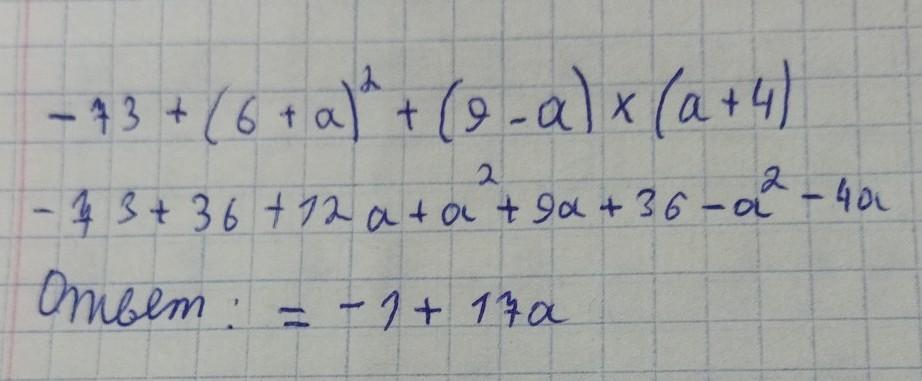 -73 + (6 + a)² + (9 - a) × (a + 4)
-73 + 36 + 12a + a² + 9a + 36 - a² - 4a
Ответ: = -1 + 17a